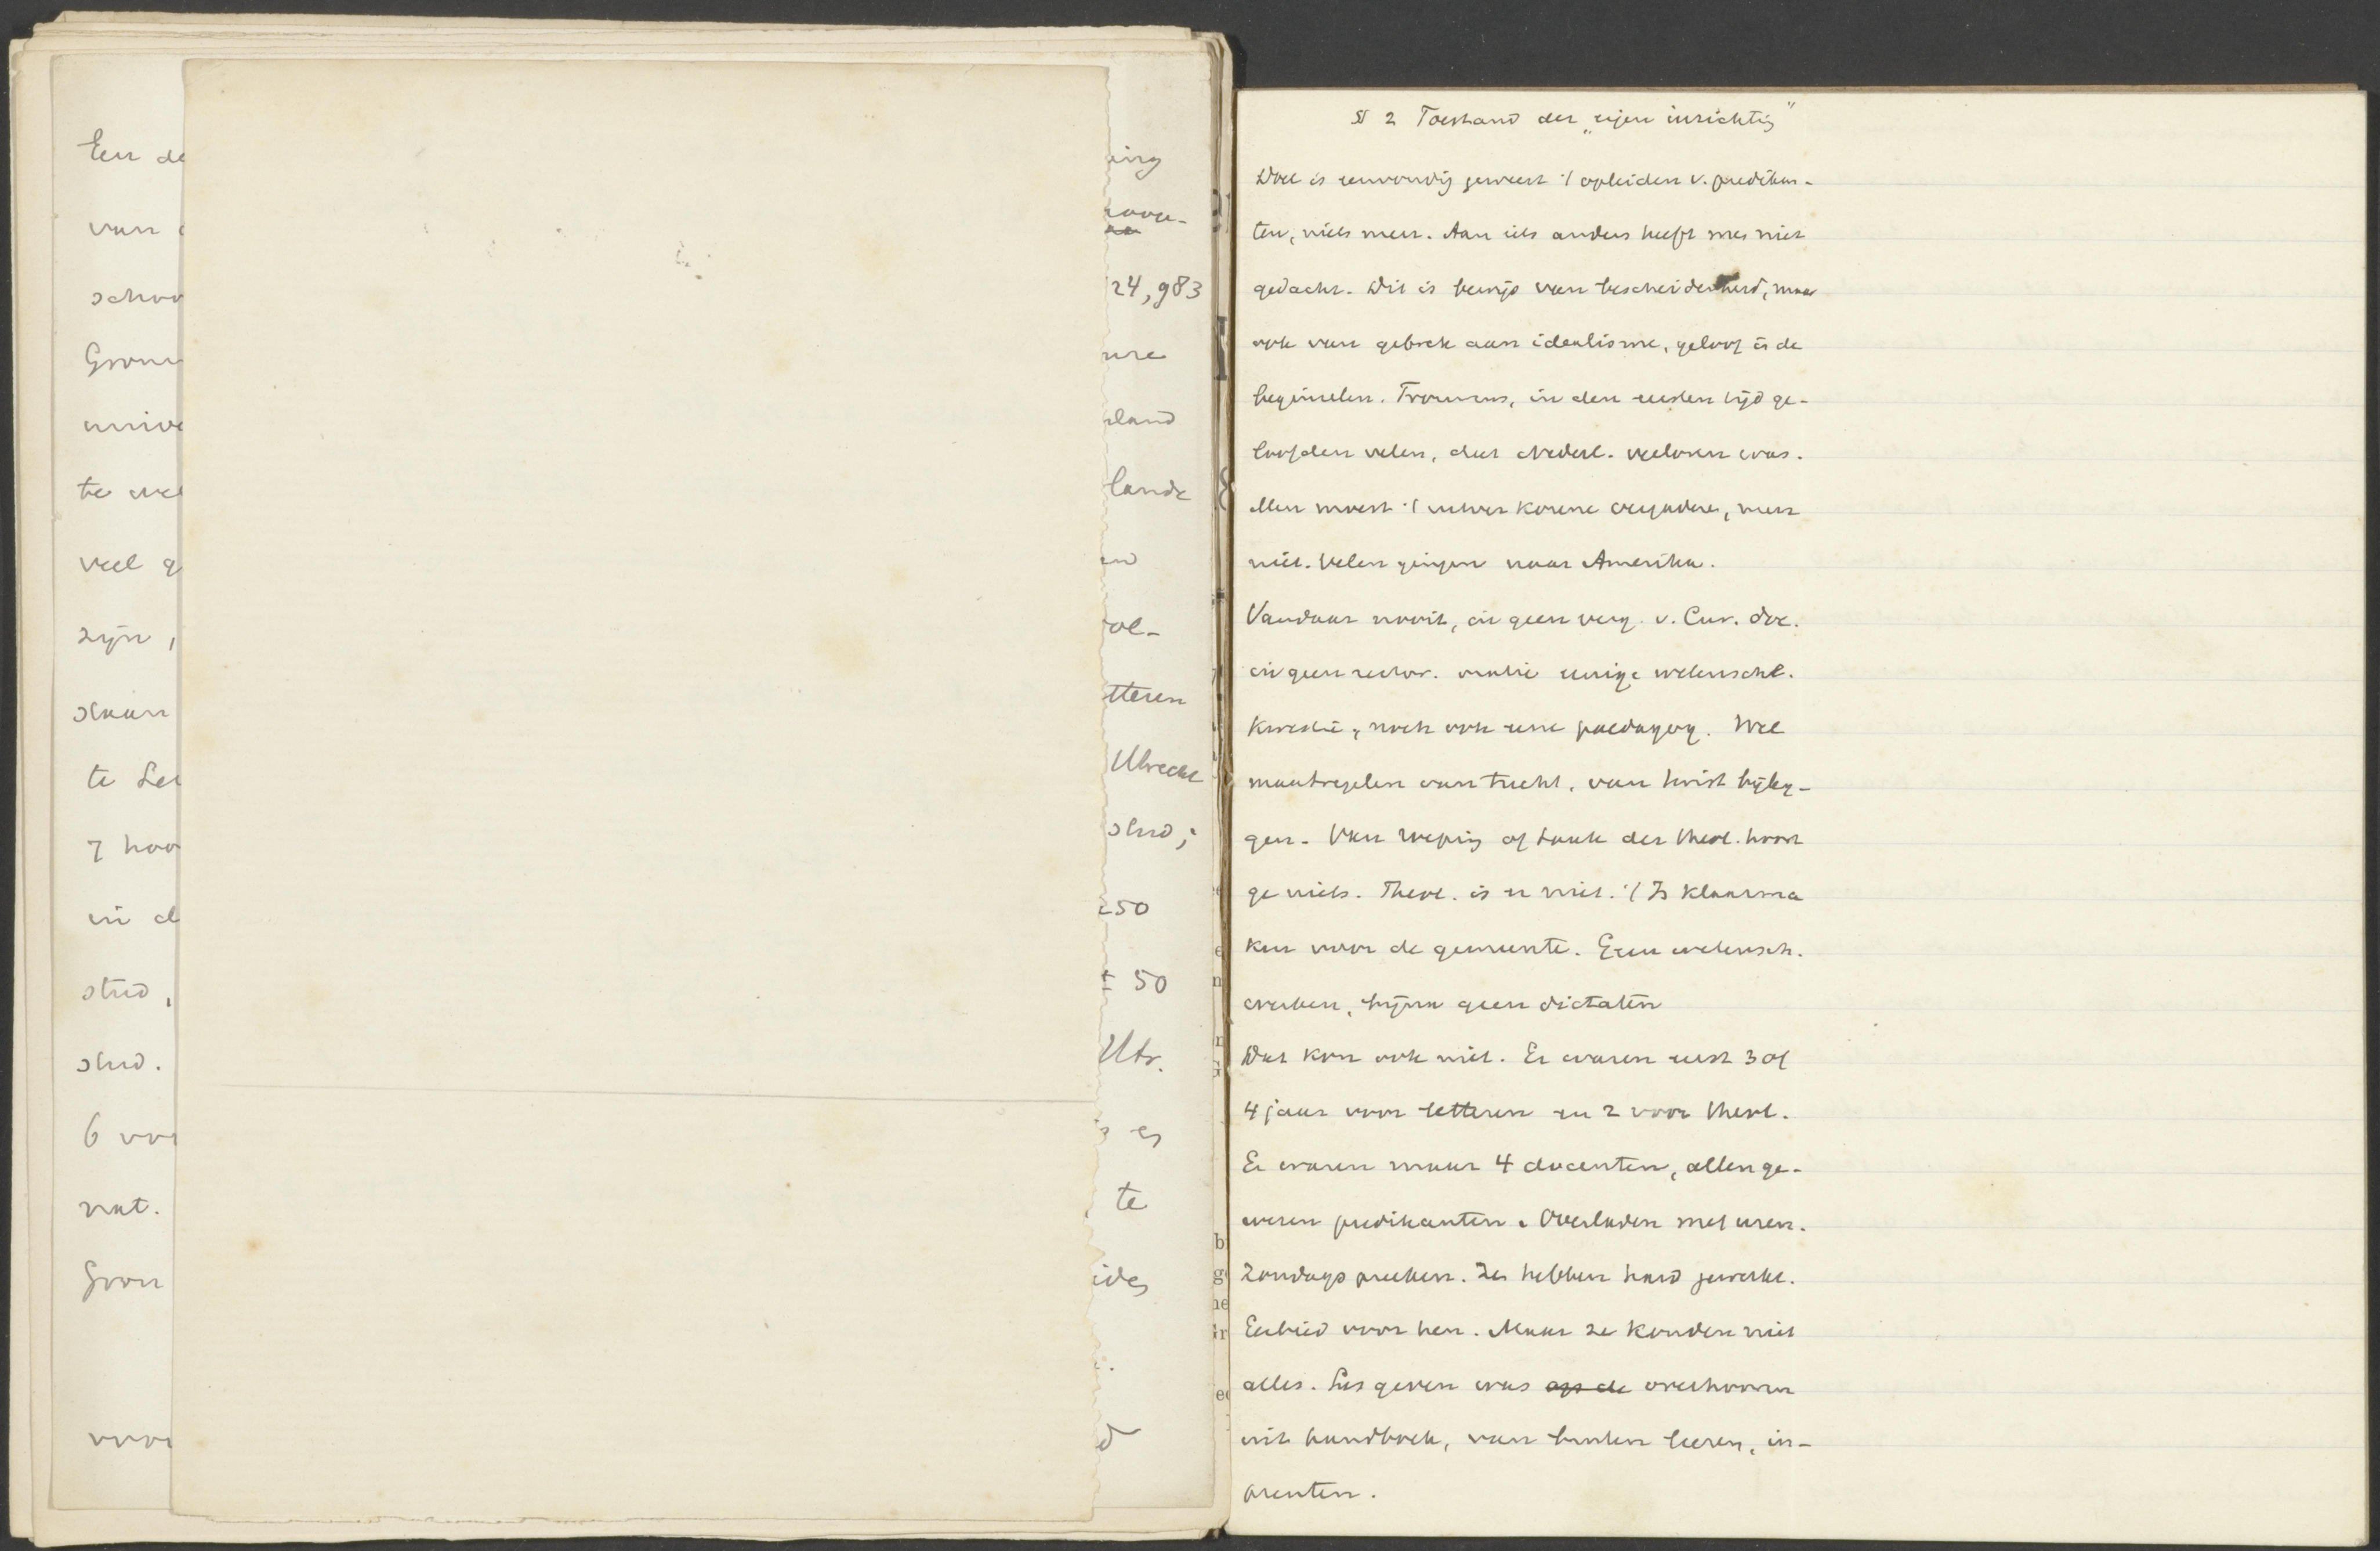 Een de
van
schoo
Gron
unive
te wel
veel g
zijn,
staan
te Lei
7 hoo
in d
stud,
stud.
6 voo
nat.
Gron
voor
ing
24,983
ure
rland
lande
en
ol-
tteren
Utrecht
stud;
250
± 50
Utr.
es
te
ides
d
§ 2 Toestand der „eigen inrichtig"
Doel is eenvoudig geweest 't opleiden v. predikan-
ten, niets meer. Aan iets anders heeft men niet
gedacht. Dit is bewijs van bescheidenheid, maar
ook van gebrek aan idealisme, geloof in de
beginselen. Trouwens, in den eersten tijd ge-
loofden velen, dat Nederl. verloren was.
Men moest 't uitver korene vergaderen, meer
niet. Velen gingen naar Amerika.
Vandaar nooit, in geen verg. v. Cur. doc.
in geen rector. oratie eenige wetenschl.
kwestie, noch ook eene paedagog. Wel
maatregelen van tucht, van twist bijleg-
gen. Van roeping of taak der theol. hoort
ge niets. Theol. is er niet. 't Is klaarma
ken voor de gemeente. Geen wetensch.
werken, bijna geen dictaten
Dat kon ook niet. Er waren eerst 3 of
4 jaar voor letteren en 2 voor theol.
Er waren maar 4 docenten, allen ge-
wezen predikanten. Overladen met uren.
Zondags preeken. Ze hebben hard gewerkt.
Eerbied voor hen. Maar ze konden niet
alles. Les geven was op de overhooren
uit handboek, van buiten leeren, in-
prenten.